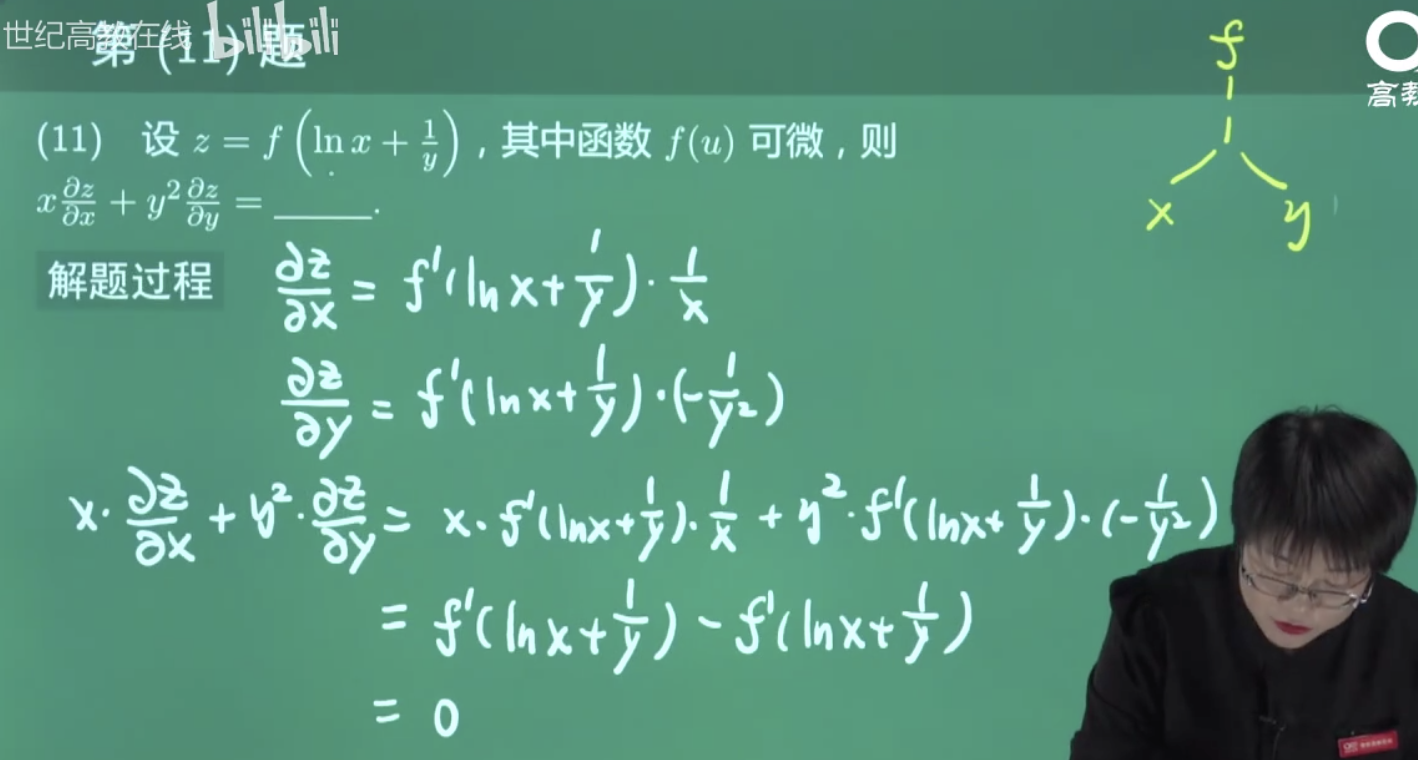 世纪高教在线 bilibili
第 (11) 题
高教
(11) 设 z = f(ln x + 1/y)，其中函数 f(u) 可微，则
x ∂z/∂x + y² ∂z/∂y = ______.
f
1
x y
解题过程
∂z/∂x = f'(ln x + 1/y) · 1/x
∂z/∂y = f'(ln x + 1/y) · (-1/y²)
x · ∂z/∂x + y² · ∂z/∂y = x · f'(ln x + 1/y) · 1/x + y² · f'(ln x + 1/y) · (-1/y²)
= f'(ln x + 1/y) - f'(ln x + 1/y)
= 0